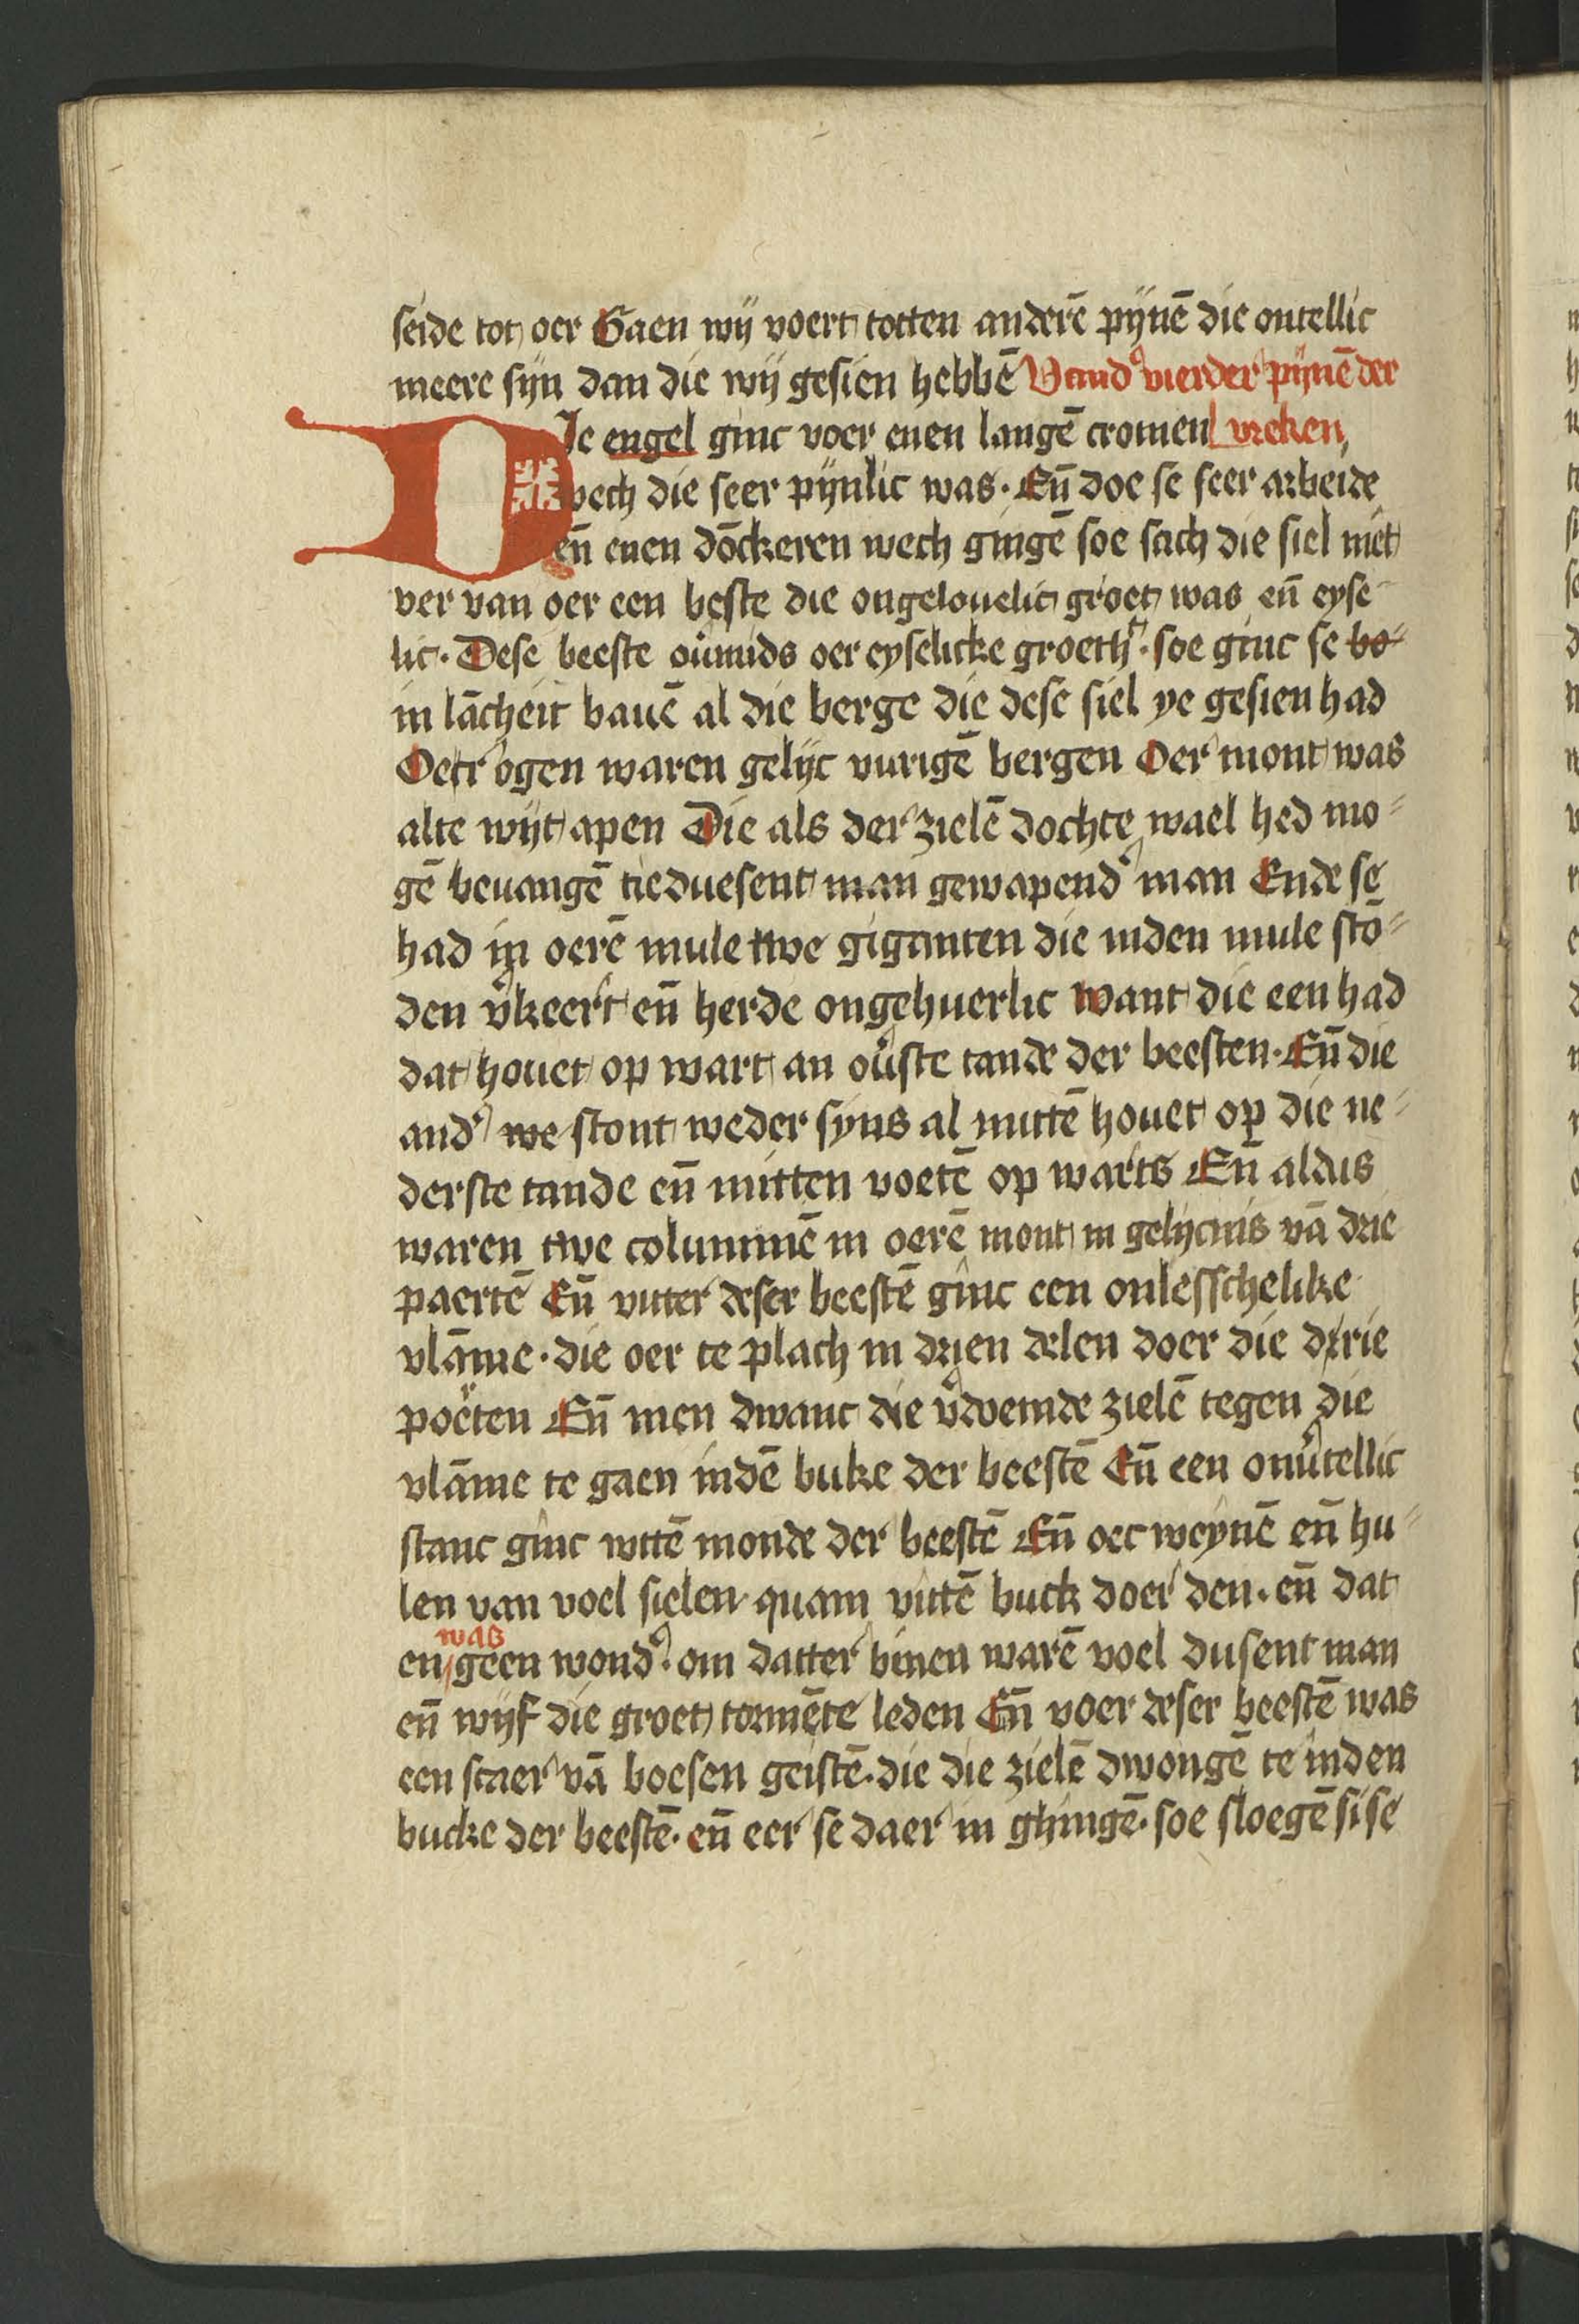 seide tot oer Gaen wij voert totten anderē pijnē die ontellic
meere sijn dan die wij gesien hebbē Vand vierder pijnē der
DIe engel ginc voer enen langē cromen vreken
wech die seer pijnlic was · Eñ doe se seer arbeide
eñ enen dōckeren wech gingē soe sach die siel niet
ver van oer een beste die ongelouelic groet was eñ eyse
lic · Dese beeste ouimids oer eyselicke groeth · soe ginc se bo
in lācheit bauē al die berge die dese siel ye gesien had
Oer ogen waren gelijc vurigē bergen Oer mont was
alte wijt apen Die als der zielē dochte wael hed mo
gē beuangē tieduesent man gewapend man Ende se
had in oerē mule twe giganten die inden mule stō
den vkeert eñ herde ongehuerlic want die een had
dat houet op wart an ouste tande der beesten · Eñ die
and we stont weder syns al mittē houet op die ne
derste tande eñ mitten voetē op warts Eñ aldus
waren twe columnē in oerē mont in gelijcnis vā drie
paertē Eñ vuter deser beestē ginc een onlesschelike
vlāme · die oer te plach in drien delen doer die drie
poerten Eñ men dwanc die vdoemde zielē tegen die
vlāme te gaen indē buke der beestē Eñ een onutellic
stanc ginc wttē monde der beestē Eñ oec weynē eñ hu
len van voel sielen quam vuttē buck doer den · eñ dat
was
en geen wond · om datter binen warē voel dusent man
eñ wijf die groet tormēte leden Eñ voer deser beestē was
een scaer vā boesen geistē · die die zielē dwongē te inden
bucke der beestē · eñ eer se daer in ghingē · soe sloegē si se